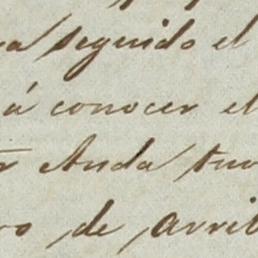 seguido el
á conocer el
Anda tuv
de arri